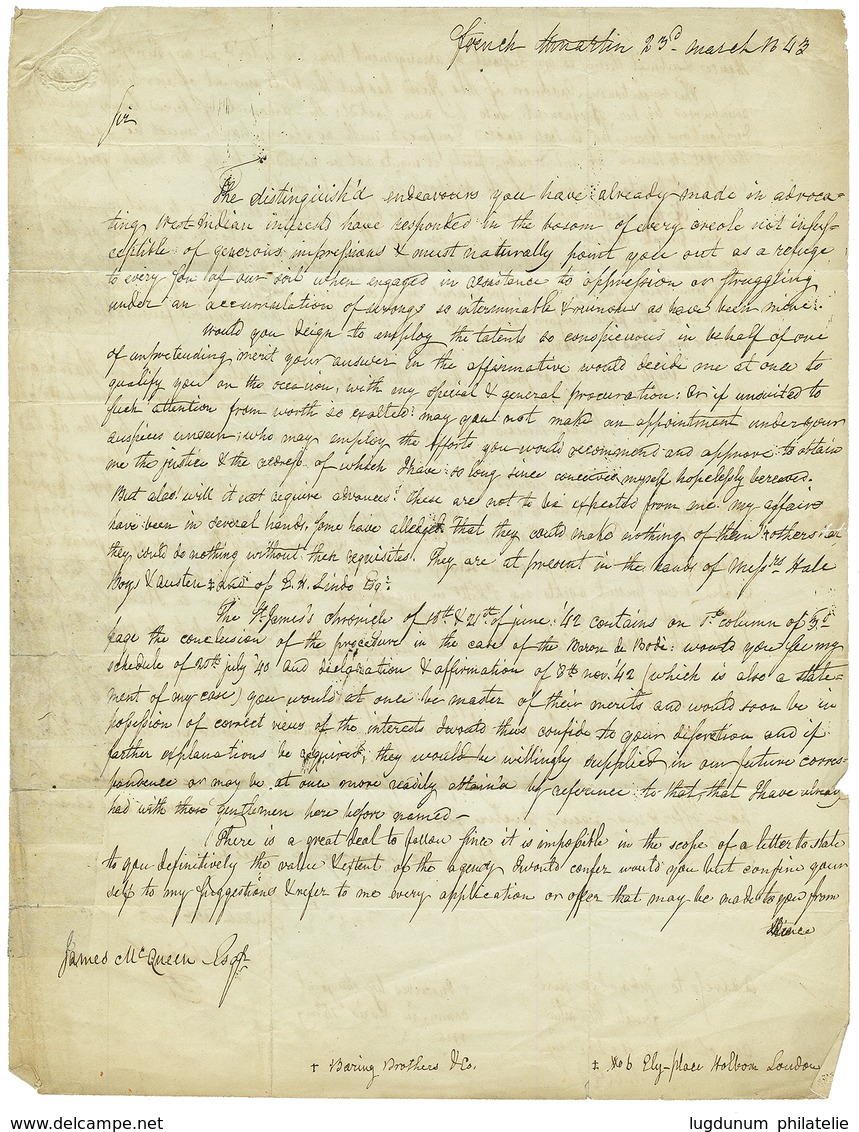 French St martin 23d march 1843
Sir
The distinguish'd endeavours you have already made in advoca-
ting West Indian interests have responded in the bosom of every creole not insus-
ceptible of generous impressions & must naturally point you out as a refuge
to every son of our soil when engaged in resistance to oppression or struggling
under an accumulation of wrongs so interminable & ruinous as have been mine.
Would you deign to employ the talents so conspicuous in behalf of one
of unpretending merit your answer in the affirmative would decide me at once to
qualify you on the occasion, with my special & general procuration: Or if unsuited to
such attention from worth so exalted? may you not make an appointment under your
auspices unseen; who may employ the efforts you would recommend and approve to obtain
me the justice & the redress of which I have so long since conceived myself hopelessly bereaved.
But alas! will it not require advances? these are not to be expected from me. my affairs
have been in several hands. Some have alledged that they could make nothing of them & others that
they could do nothing without their requisites. They are at present in the hands of Messrs Hale
Boys & Austen ‡ and of E. H. Lindo Esqr
The St James's chronicle of 18th & 21st of june '42 contains on 1st column of 3d
page the conclusion of the procedure in the case of the Baron de Bode: would you see my
schedule of 20th july '40 and declaration & affirmation of 8th nov. '42 (which is also a state-
ment of my case) you would at once be master of their merits and would soon be in
possession of correct views of the interests I would thus confide to your discretion and if
farther explanations be required, they would be willingly supplied in our future corres-
pondence or may be at once more readily obtain'd by reference to that, that I have already
had with those gentlemen here before named -
There is a great deal to follow since it is impossible in the scope of a letter to state
to you definitively the value & extent of the agency I would confer would you but confine your
self to my suggestions & refer to me every application or offer that may be made to you from
hence
James McQueen Esqr
† Baring Brothers & Co.
‡ No 6 Ely-place Holborn London
www.delcampe.net
lugdunum philatelie